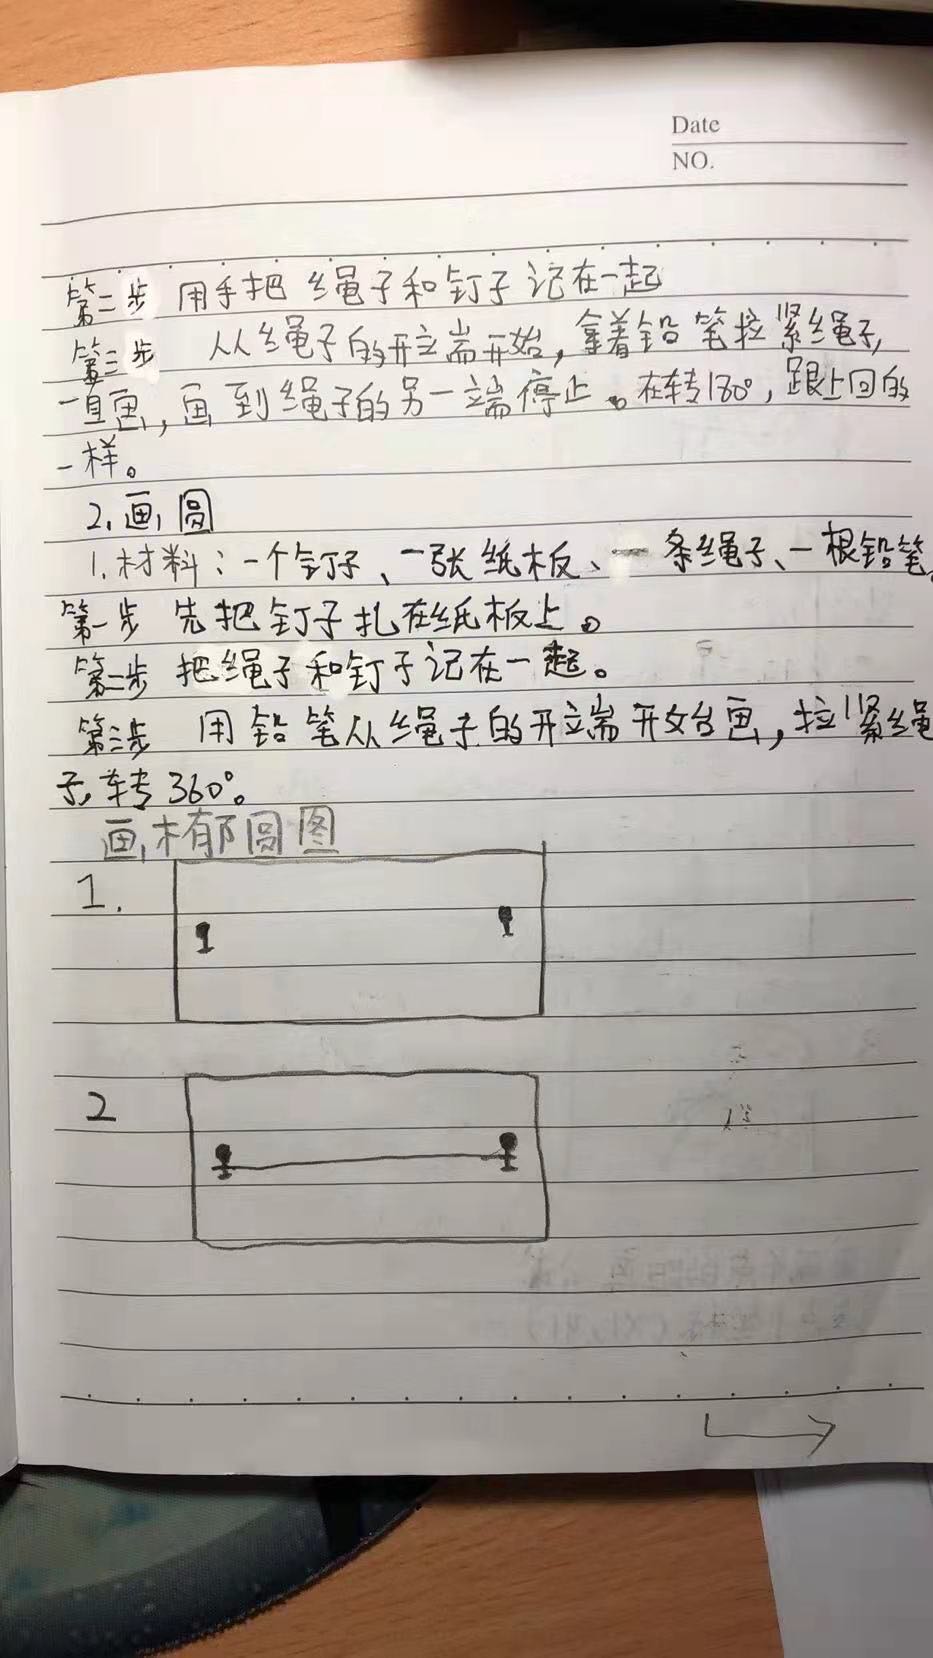 Date
NO.
第二步 用手把绳子和钉子记在一起
第三步 从绳子的开立端开始，拿着铅笔拉紧绳子，
一直画，画到绳子的另一端停止。在转180°，跟上回的
一样。
2.画圆
1.材料：一个钉子、一张纸板、一条绳子、一根铅笔。
第一步 先把钉子扎在纸板上。
第二步 把绳子和钉子记在一起。
第三步 用铅笔从绳子的开立端开始画，拉紧绳
子，转360°。
画椭圆图
1.
2